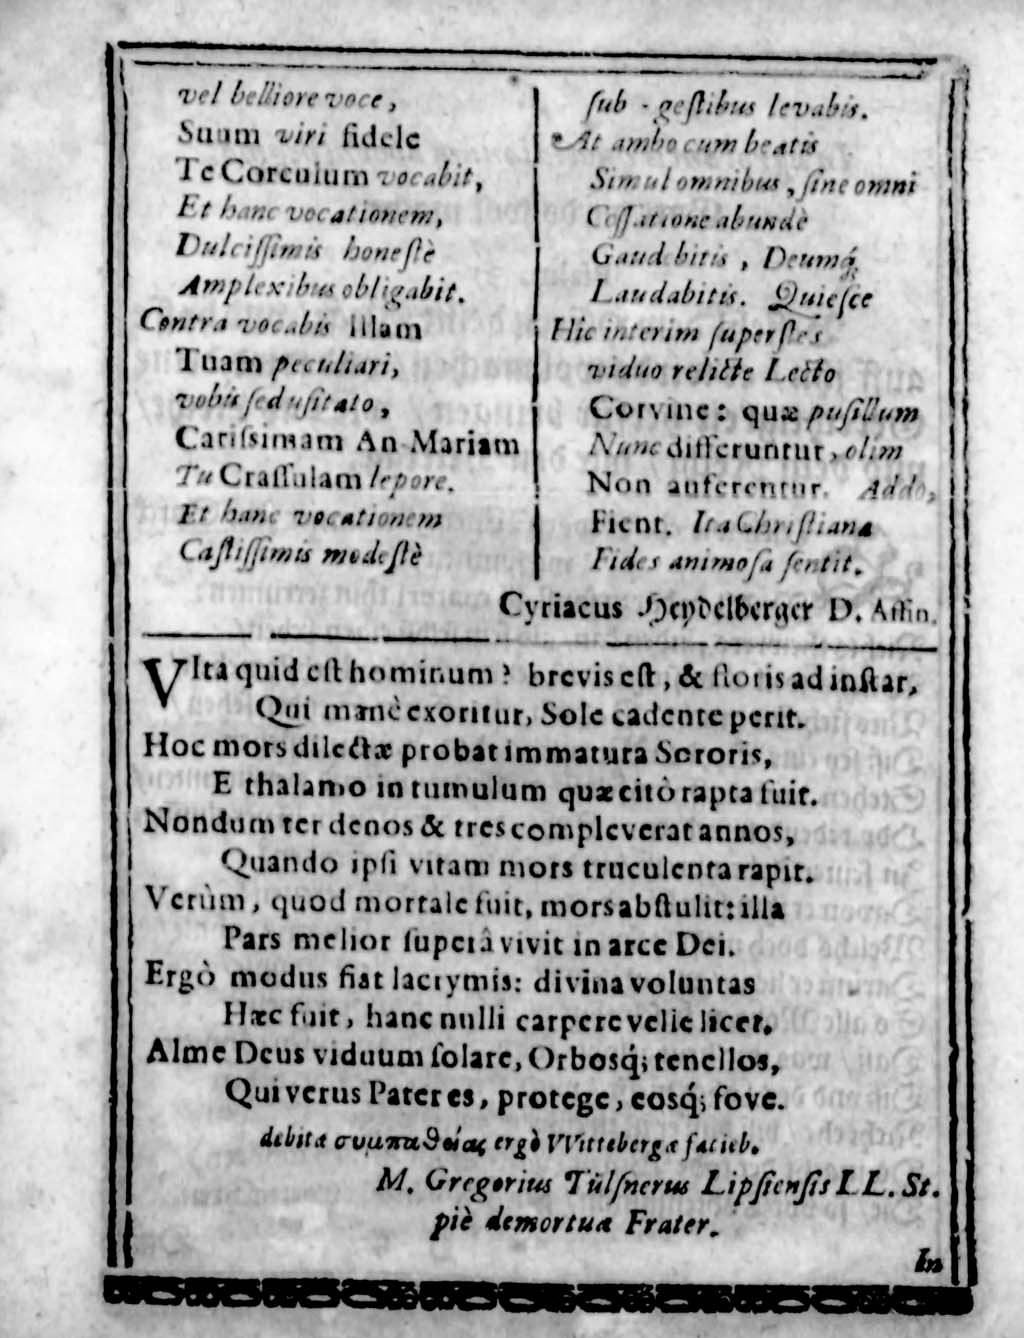 vel belliore voce,
Suum viri fidele
Te Corculum vocabit,
Et hanc vocationem,
Dulcißimis honestè
Amplexibus obligabit.
Contra vocabis illam
Tuam peculiari,
vobis sed usitato,
Carissimam An-Mariam
Tu Crassulam lepore.
Et hanc vocationem
Castißimis modestè
sub-gestibus levabis.
At ambo cum beatis
Simul omnibus, sine omni
Cessatione abundè
Gaudebitis, Deumq́;
Laudabitis. Quiesce
Hic interim superstes
viduo relicte Lecto
Corvine: quæ pusillum
Nunc differuntur, olim
Non auferentur. Addo,
Fient. Ita Christiana
Fides animosa sentit.
Cyriacus Heydelberger D. Affin.
VIta quid est hominum? brevis est, & floris ad instar,
Qui manè exoritur, Sole cadente perit.
Hoc mors dilectæ probat immatura Sororis,
E thalamo in tumulum quæ citò rapta fuit.
Nondum ter denos & tres compleverat annos,
Quando ipsi vitam mors truculenta rapit.
Verùm, quod mortale fuit, mors abstulit: illa
Pars melior superâ vivit in arce Dei.
Ergò modus fiat lacrymis: divina voluntas
Hæc fuit, hanc nulli carpere velle licet.
Alme Deus viduum solare, Orbosq́; tenellos,
Qui verus Pater es, protege, eosq́; fove.
debitæ συμπαθείας ergò VVittebergæ facieb.
M. Gregorius Tülsnerus Lipsiensis LL. St.
piè demortuæ Frater.
In